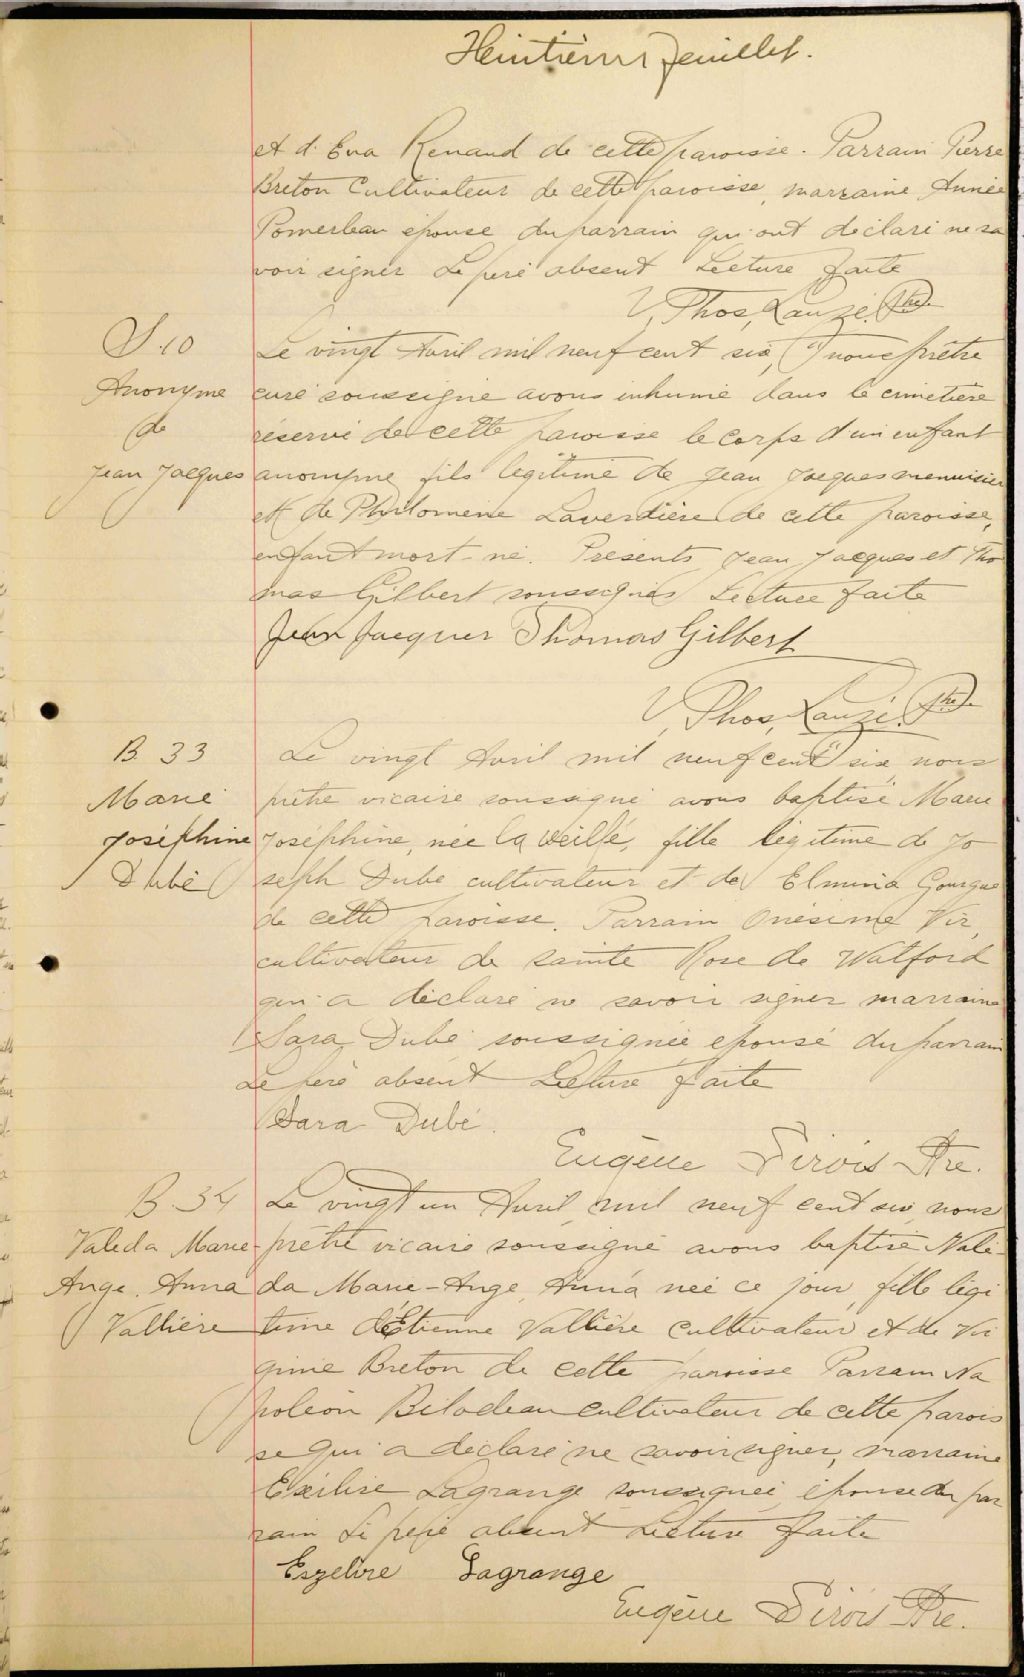 Huitième feuillet.
et d'Eva Renaud de cette paroisse. Parrain Pierre
Breton Cultivateur de cette paroisse, marraine Année
Pomerleau épouse du parrain qui ont déclaré ne sa
voir signer Le père absent Lecture faite
V. Thos, Lauzé. Ptre.
S. 10
Anonyme
de
Jean Jacques
Le vingt Avril mil neuf cent six, nous prêtre
curé soussigné avons inhumé dans le cimetière
réservé de cette paroisse le corps d'un enfant
anonyme fils légitime de Jean Jacques menuisier
et de Philomène Laverdière de cette paroisse,
enfant mort-né. Présents Jean Jacques et Tho
mas Gilbert soussignés Lecture faite
Jean Jacques Thomas Gilbert
V. Thos, Lauzé. Ptre.
B. 33
Marie
Joséphine
Dubé
Le vingt Avril mil neuf cent six, nous
prêtre vicaire soussigné avons baptisé Marie
Joséphine, née la veille, fille légitime de Jo
seph Dubé cultivateur et de Elmina Gourgue
de cette paroisse. Parrain Onésime Vir,
cultivateur de sainte Rose de Watford
qui a déclaré ne savoir signer marraine
Sara Dubé soussignée, épouse du parrain
Le père absent Lecture faite
Sara Dubé.
Eugène Sirois Ptre.
B. 34
Valeda Marie-
Ange, Anna
Vallière
Le vingt un Avril, mil neuf cent six, nous
prêtre vicaire soussigné avons baptisé Vale-
da Marie-Ange, Anna née ce jour, fille légi
time d'Étienne Vallière cultivateur et de Vir
ginie Breton de cette paroisse Parrain Na
poléon Bilodeau cultivateur de cette parois
se qui a déclaré ne savoir signer, marraine
Exilise Lagrange soussignée, épouse du par
rain Le père absent Lecture faite
Eszelire Lagrange
Eugène Sirois Ptre.